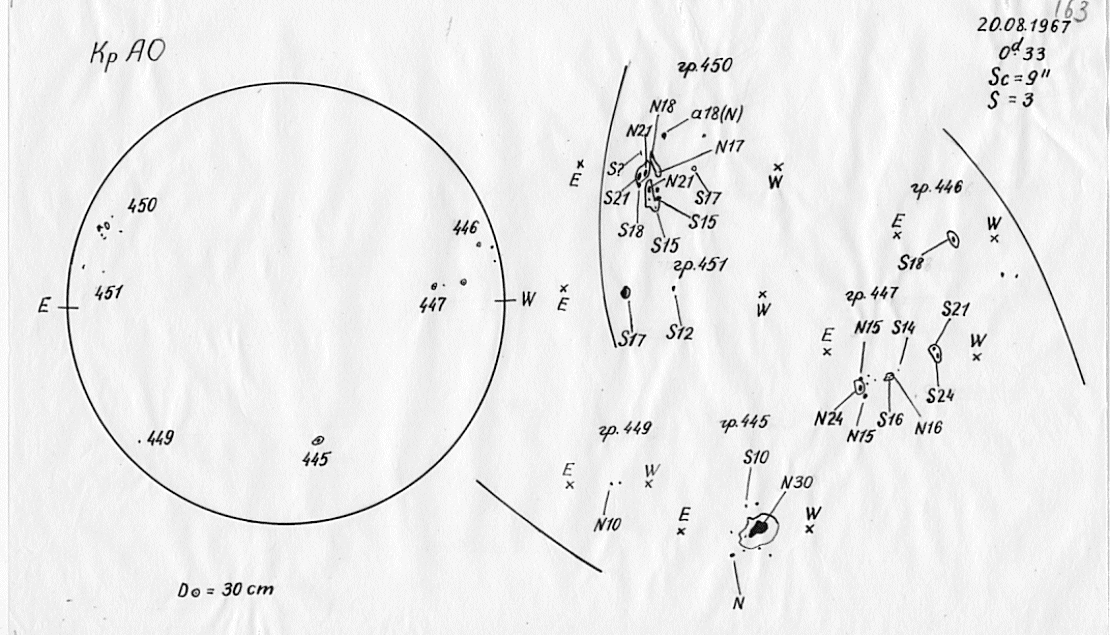 163
20.08.1967
0d.33
Sc = 9"
S = 3
Кр АО
450
446
451
E
W
447
449
445
D⊙ = 30 cm
гр.450
N18
a18(N)
N21
N17
S?
E
W
S21
N21
S17
S18
S15
S15
гр.451
E
W
S17
S12
гр.446
E
W
S18
гр.447
E
N15
S14
S21
W
N24
N15
S16
N16
S24
гр.449
E
W
N10
гр.445
S10
N30
E
W
N